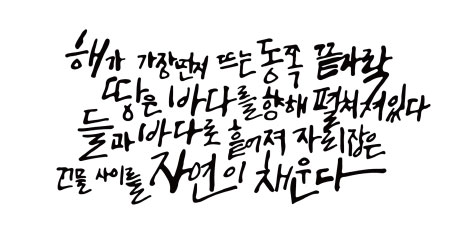 해가 가장먼저 뜨는 동쪽 끝자락
땅은 바다를 향해 펼쳐져있다
들과 바다로 흩어져 자리잡은
건물 사이를 자연이 채운다